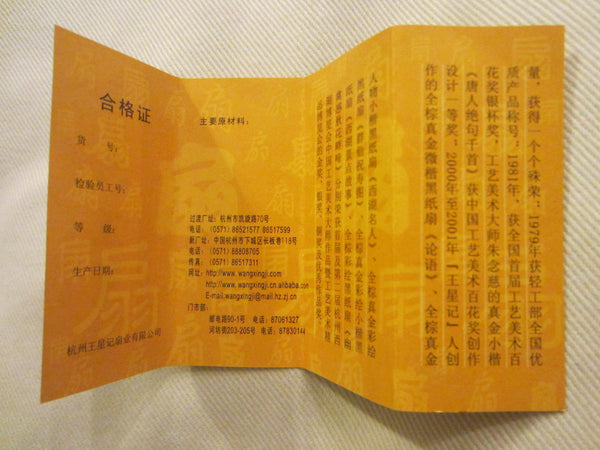 合格证
货 号:
检验员工号:
等 级:
生产日期:
杭州王星记扇业有限公司
主要原材料:
过渡厂址: 杭州市凯旋路70号
电话: (0571) 86521577 86517599
新厂址: 中国杭州市下城区长板巷118号
电话: (0571) 88808705
传真: (0571) 86517311
网址: http://www.wangxingji.com
http://www.wangxingji.cn.alibaba.com
E-mail.wangxingji@mail.hz.zj.cn
门市部:
邮电路90-1号 电话: 87061327
河坊街203-205号 电话: 87830144
量，获得一个个殊荣：1979年获轻工部全国优
质产品称号；1981年，获全国首届工艺美术百
花奖银杯奖，工艺美术大师朱念慈的真金小楷
《唐人绝句千首》获中国工艺美术百花奖创作
设计一等奖；2000年至2001年『王星记』人创
作的全棕真金微楷黑纸扇《论语》、全棕真金
人物小楷黑纸扇《西湖名人》、全棕真金彩绘
黑纸扇《群仙祝寿图》、全棕真金彩绘小楷黑
纸扇《西湖景点故事》、全棕彩绘黑纸扇《幽
分别荣获首届及第二届杭州西
湖博览会中国工艺美术大师作品暨工艺美术精
品博览会的金奖、银奖、铜奖及优秀作品奖。